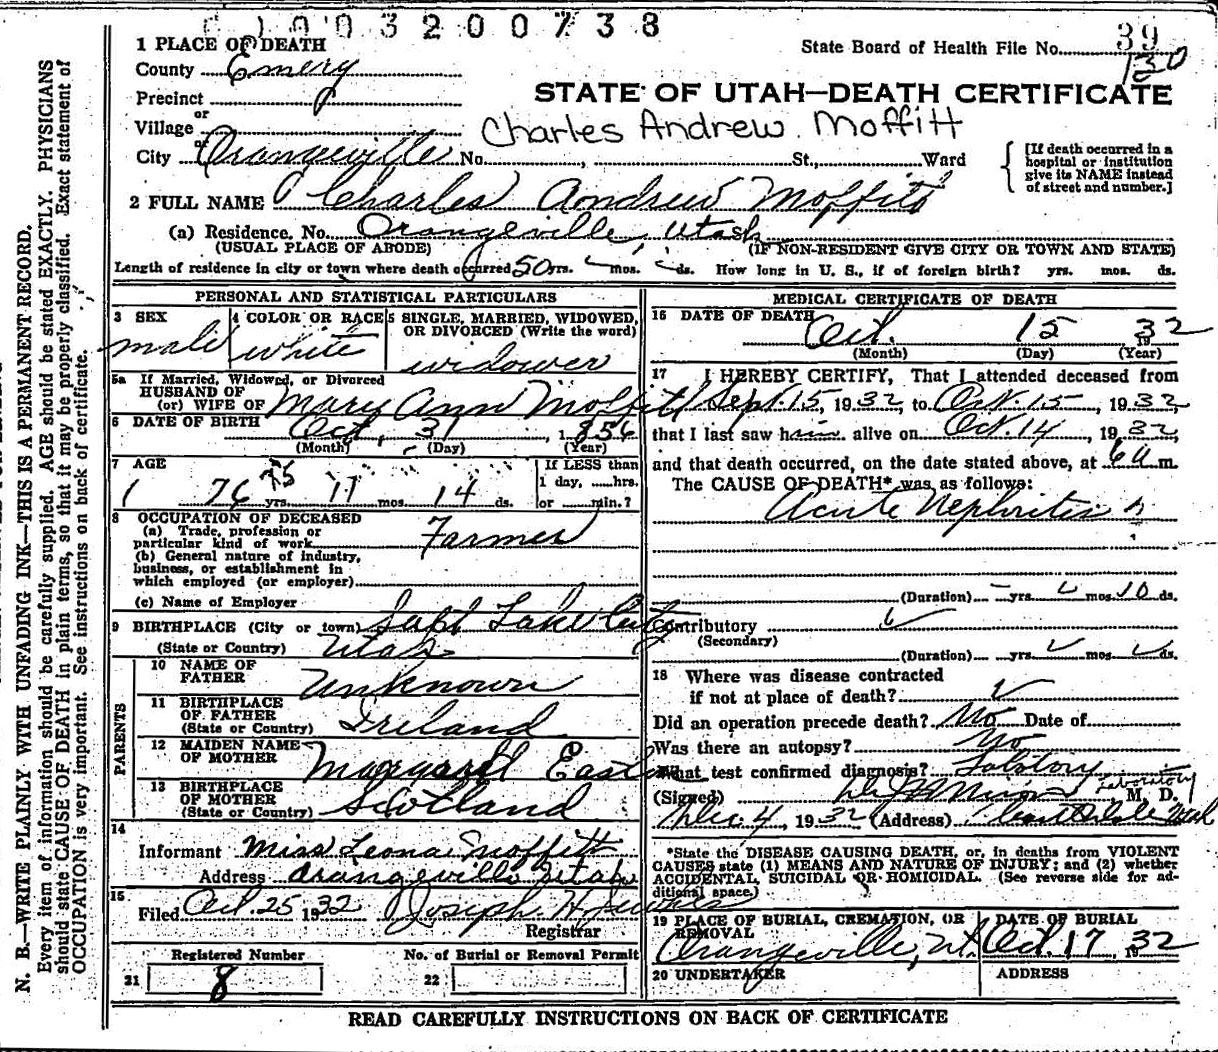 003200738
1 PLACE OF DEATH
State Board of Health File No. 39
130
County Emery
STATE OF UTAH—DEATH CERTIFICATE
Precinct
or
Village
Charles Andrew Moffitt
City Orangeville No. , St., Ward
[If death occurred in a hospital or institution give its NAME instead of street and number.]
2 FULL NAME Charles Andrew Moffitt
(a) Residence. No. Orangeville, Utah
(USUAL PLACE OF ABODE) (IF NON-RESIDENT GIVE CITY OR TOWN AND STATE)
Length of residence in city or town where death occurred 50 yrs. mos. ds. How long in U. S., if of foreign birth? yrs. mos. ds.
PERSONAL AND STATISTICAL PARTICULARS
3 SEX
male
4 COLOR OR RACE
white
5 SINGLE, MARRIED, WIDOWED, OR DIVORCED (Write the word)
widower
5a If Married, Widowed, or Divorced
HUSBAND OF
(or) WIFE OF Mary Ann Moffitt
6 DATE OF BIRTH Oct, 31, 1856
(Month) (Day) (Year)
7 AGE
76 75 yrs 11 mos. 14 ds.
If LESS than
1 day, hrs.
or min.?
8 OCCUPATION OF DECEASED
(a) Trade, profession or
particular kind of work Farmer
(b) General nature of industry,
business, or establishment in
which employed (or employer)
(c) Name of Employer
9 BIRTHPLACE (City or town) Salt Lake City
(State or Country) Utah
PARENTS
10 NAME OF
FATHER Unknown
11 BIRTHPLACE
OF FATHER
(State or Country) Ireland
12 MAIDEN NAME
OF MOTHER Margarett
13 BIRTHPLACE
OF MOTHER
(State or Country) Scotland
14
Informant Miss Leona Moffitt
Address Orangeville Utah
15
Filed Oct. 25 1932 Joseph H
Registrar
Registered Number
21 8
No. of Burial or Removal Permit
22
MEDICAL CERTIFICATE OF DEATH
16 DATE OF DEATH
Oct. 15 1932
(Month) (Day) (Year)
17 I HEREBY CERTIFY, That I attended deceased from
Sept. 15, 1932, to Oct. 15, 1932,
that I last saw him alive on Oct. 14, 1932,
and that death occurred, on the date stated above, at 6 a m.
The CAUSE OF DEATH* was as follows:
Acute Nephritis
(Duration) yrs. mos. 10 ds.
Contributory
(Secondary)
(Duration) yrs. mos. ds.
18 Where was disease contracted
if not at place of death?
Did an operation precede death? No Date of
Was there an autopsy? No
What test confirmed diagnosis?
Laboratory
(Signed) M. D.
Dec 4, 1932 (Address)
*State the DISEASE CAUSING DEATH, or, in deaths from VIOLENT
CAUSES state (1) MEANS AND NATURE OF INJURY; and (2) whether
ACCIDENTAL, SUICIDAL OR HOMICIDAL. (See reverse side for ad-
ditional space.)
19 PLACE OF BURIAL, CREMATION, OR
REMOVAL
Orangeville, Ut.
DATE OF BURIAL
Oct. 17, 1932
20 UNDERTAKER
ADDRESS
READ CAREFULLY INSTRUCTIONS ON BACK OF CERTIFICATE
N. B.—WRITE PLAINLY WITH UNFADING INK—THIS IS A PERMANENT RECORD.
Every item of information should be carefully supplied. AGE should be stated EXACTLY. PHYSICIANS
should state CAUSE OF DEATH in plain terms, so that it may be properly classified. Exact statement of
OCCUPATION is very important. See instructions on back of certificate.